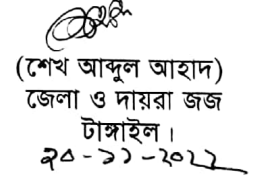 (শেখ আব্দুল আহাদ)
জেলা ও দায়রা জজ
টাঙ্গাইল।
২০-১১-২০২২